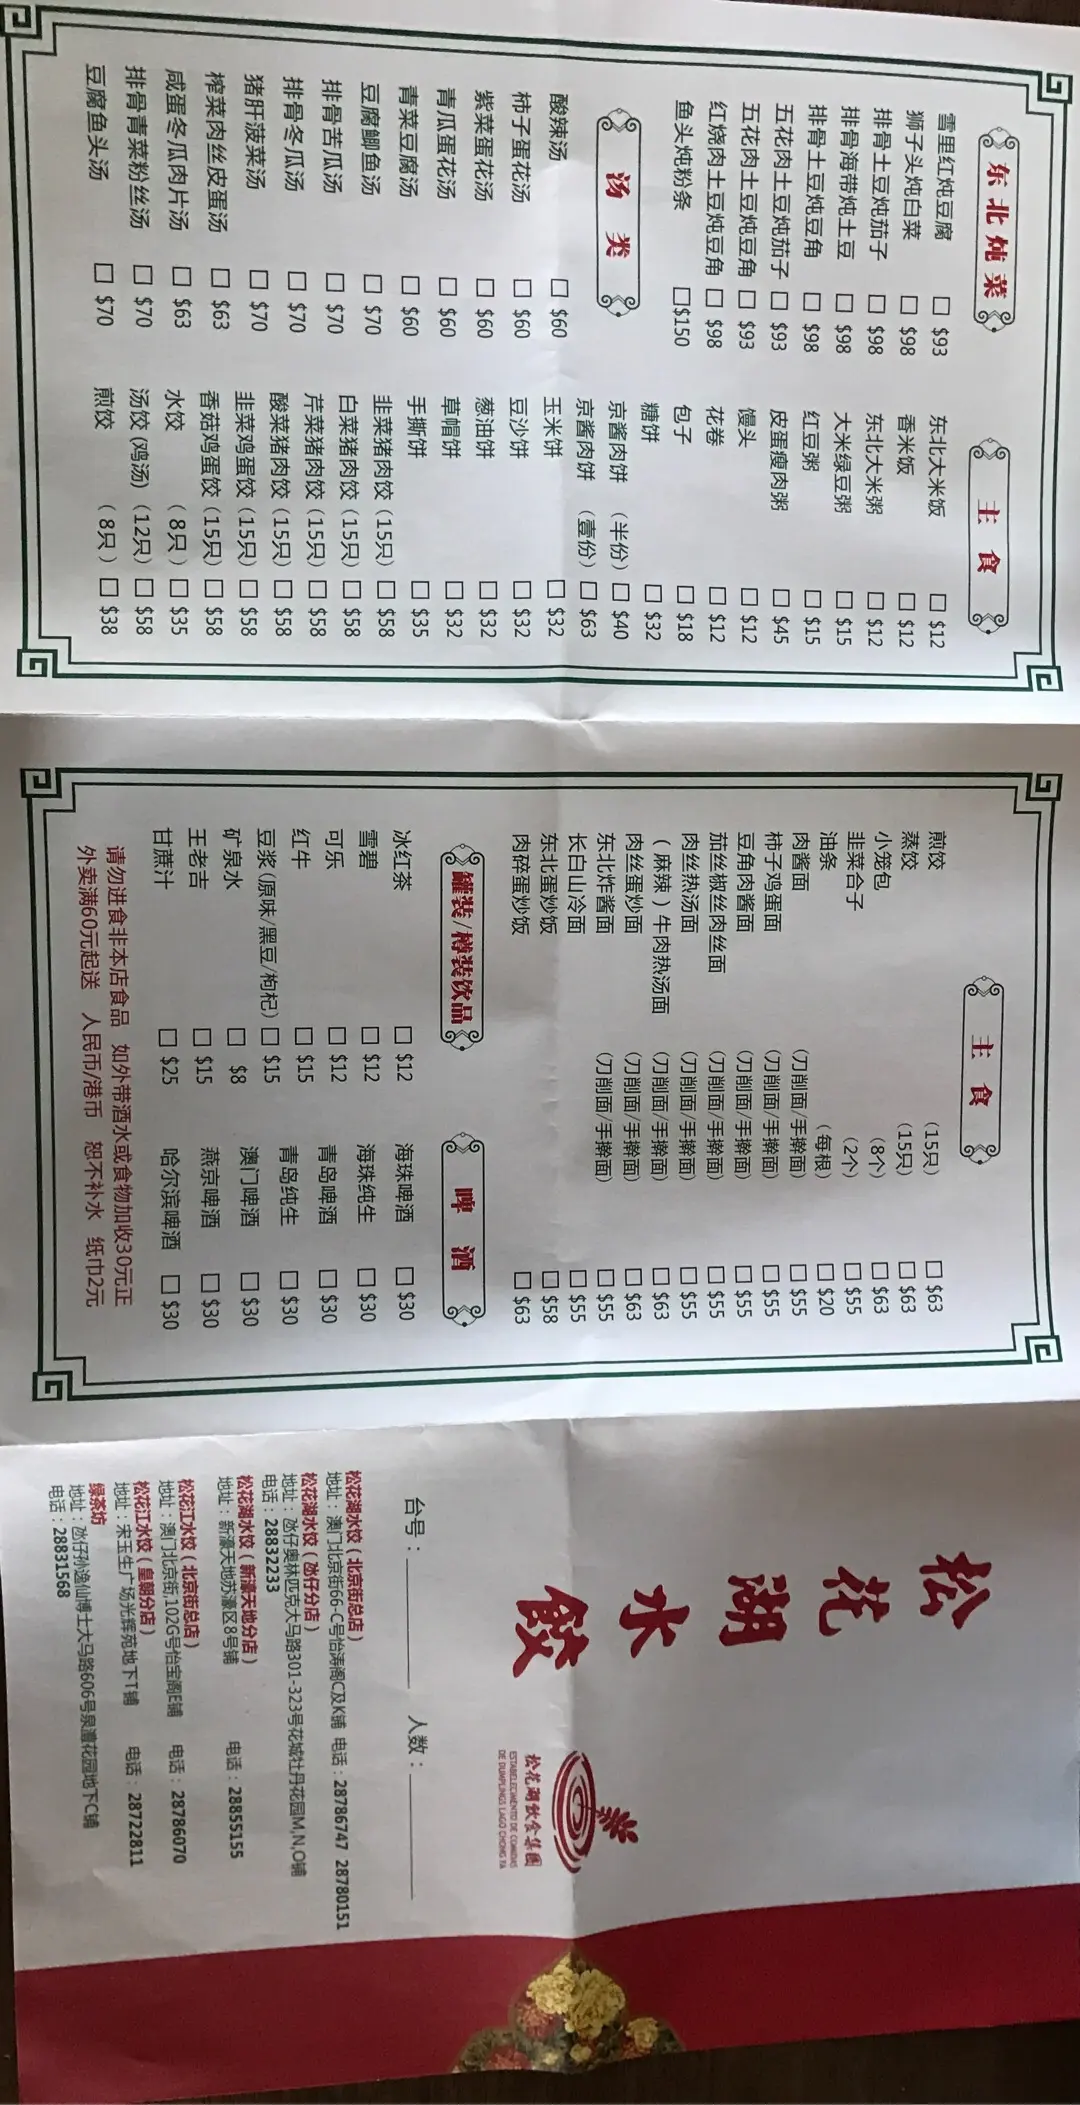 东北炖菜
雪里红炖豆腐 □ $93
狮子头炖白菜 □ $98
排骨土豆炖茄子 □ $98
排骨海带炖土豆 □ $98
排骨土豆炖豆角 □ $98
五花肉土豆炖茄子 □ $93
五花肉土豆炖豆角 □ $93
红烧肉土豆炖豆角 □ $98
鱼头炖粉条 □ $150
汤类
酸辣汤 □ $60
柿子蛋花汤 □ $60
紫菜蛋花汤 □ $60
青瓜蛋花汤 □ $60
青菜豆腐汤 □ $60
豆腐鲫鱼汤 □ $70
排骨苦瓜汤 □ $70
排骨冬瓜汤 □ $70
猪肝菠菜汤 □ $70
榨菜肉丝皮蛋汤 □ $63
咸蛋冬瓜肉片汤 □ $63
排骨青菜粉丝汤 □ $70
豆腐鱼头汤 □ $70
主食
东北大米饭 □ $12
香米饭 □ $12
东北大米粥 □ $12
大米绿豆粥 □ $15
红豆粥 □ $15
皮蛋瘦肉粥 □ $45
馒头 □ $12
花卷 □ $12
包子 □ $18
糖饼 □ $32
京酱肉饼 （半份） □ $40
京酱肉饼 （壹份） □ $63
玉米饼 □ $32
豆沙饼 □ $32
葱油饼 □ $32
草帽饼 □ $32
手撕饼 □ $35
韭菜猪肉饺（15只） □ $58
白菜猪肉饺（15只） □ $58
芹菜猪肉饺（15只） □ $58
酸菜猪肉饺（15只） □ $58
韭菜鸡蛋饺（15只） □ $58
香菇鸡蛋饺（15只） □ $58
水饺 （8只） □ $35
汤饺（鸡汤）（12只） □ $58
煎饺 （8只） □ $38
主食
煎饺 （15只） □ $63
蒸饺 （15只） □ $63
小笼包 （8个） □ $63
韭菜合子 （2个） □ $55
油条 （每根） □ $20
肉酱面 （刀削面/手擀面） □ $55
柿子鸡蛋面 （刀削面/手擀面） □ $55
豆角肉酱面 （刀削面/手擀面） □ $55
茄丝椒丝肉丝面 （刀削面/手擀面） □ $55
肉丝热汤面 （刀削面/手擀面） □ $55
（麻辣）牛肉热汤面 （刀削面/手擀面） □ $63
肉丝蛋炒面 （刀削面/手擀面） □ $63
东北炸酱面 （刀削面/手擀面） □ $55
长白山冷面 □ $55
东北蛋炒饭 □ $58
肉碎蛋炒饭 □ $63
罐装/樽装饮品
冰红茶 □ $12
雪碧 □ $12
可乐 □ $12
红牛 □ $15
豆浆（原味/黑豆/枸杞） □ $15
矿泉水 □ $8
王老吉 □ $15
甘蔗汁 □ $25
啤酒
海珠啤酒 □ $30
海珠纯生 □ $30
青岛啤酒 □ $30
青岛纯生 □ $30
澳门啤酒 □ $30
燕京啤酒 □ $30
哈尔滨啤酒 □ $30
请勿进食非本店食品 如外带酒水或食物加收30元正
外卖满60元起送 人民币/港币 恕不补水 纸巾2元
松花湖水餃
松花湖飲食集團
ESTABELECIMENTO DE COMIDAS
DE DUMPLINGS LAGO CHONG FA
台号： 人数：
松花湖水饺（北京街总店）
地址：澳门北京街66-C号怡涛阁C及K铺 电话：28786747 28780151
松花湖水饺（氹仔分店）
地址：氹仔奥林匹克大马路301-323号花城牡丹花园M,N,O铺
电话：28832233
松花湖水饺（新濠天地分店）
地址：新濠天地苏濠区8号铺 电话：28855155
松花江水饺（北京街总店）
地址：澳门北京街,102G号怡宝阁E铺 电话：28786070
松花江水饺（皇朝分店）
地址：宋玉生广场光辉苑地下T铺 电话：28722811
绿茶坊
地址：氹仔孙逸仙博士大马路606号泉澧花园地下C铺
电话：28831568